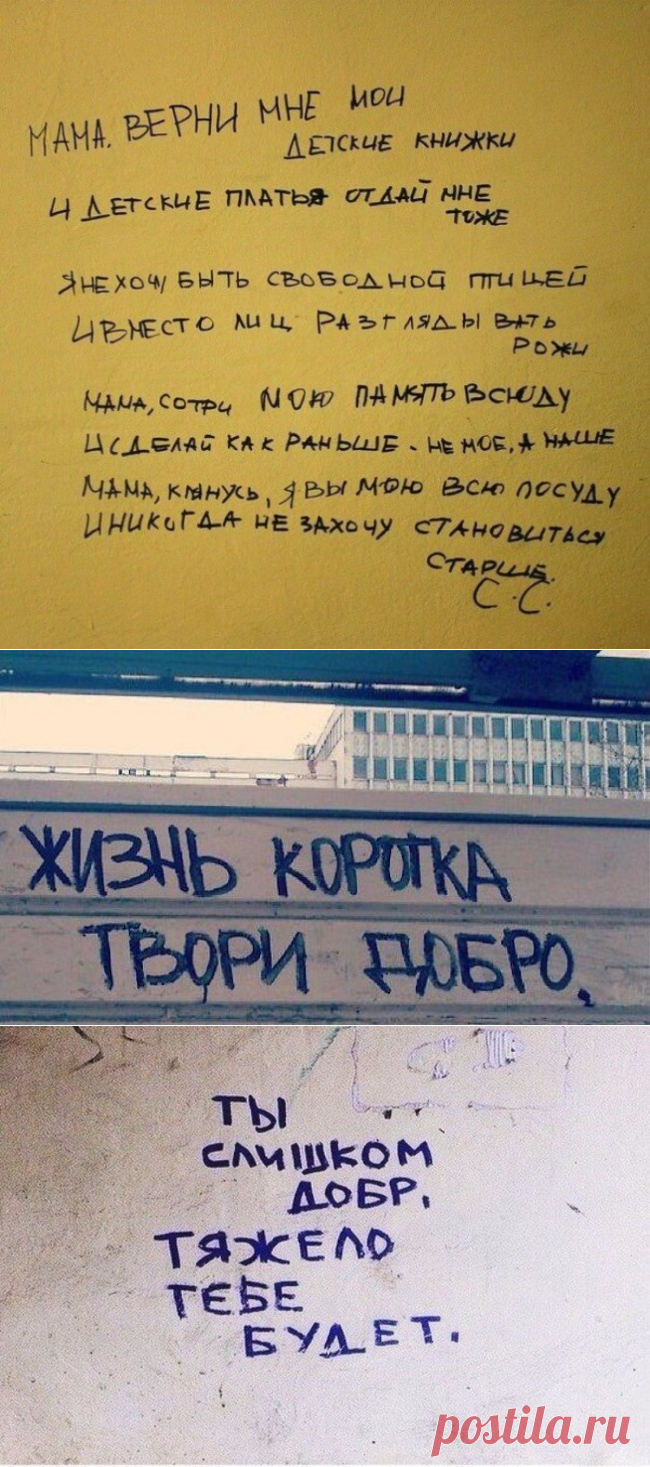 МАМА. ВЕРНИ МНЕ МОИ
ДЕТСКИЕ КНИЖКИ
И ДЕТСКИЕ ПЛАТЬЯ ОТДАЙ МНЕ
ТОЖЕ
Я НЕ ХОЧУ БЫТЬ СВОБОДНОЙ ПТИЦЕЙ
И ВМЕСТО ЛИЦ РАЗГЛЯДЫВАТЬ
РОЖИ
МАМА, СОТРИ МОЮ ПАМЯТЬ ВСЮДУ
И СДЕЛАЙ КАК РАНЬШЕ - НЕ МОЕ, А НАШЕ
МАМА, КЛЯНУСЬ, Я ВЫМОЮ ВСЮ ПОСУДУ
И НИКОГДА НЕ ЗАХОЧУ СТАНОВИТЬСЯ
СТАРШЕ.
С.С.
ЖИЗНЬ КОРОТКА
ТВОРИ ДОБРО,
ТЫ
СЛИШКОМ
ДОБР,
ТЯЖЕЛО
ТЕБЕ
БУДЕТ.
postila.ru